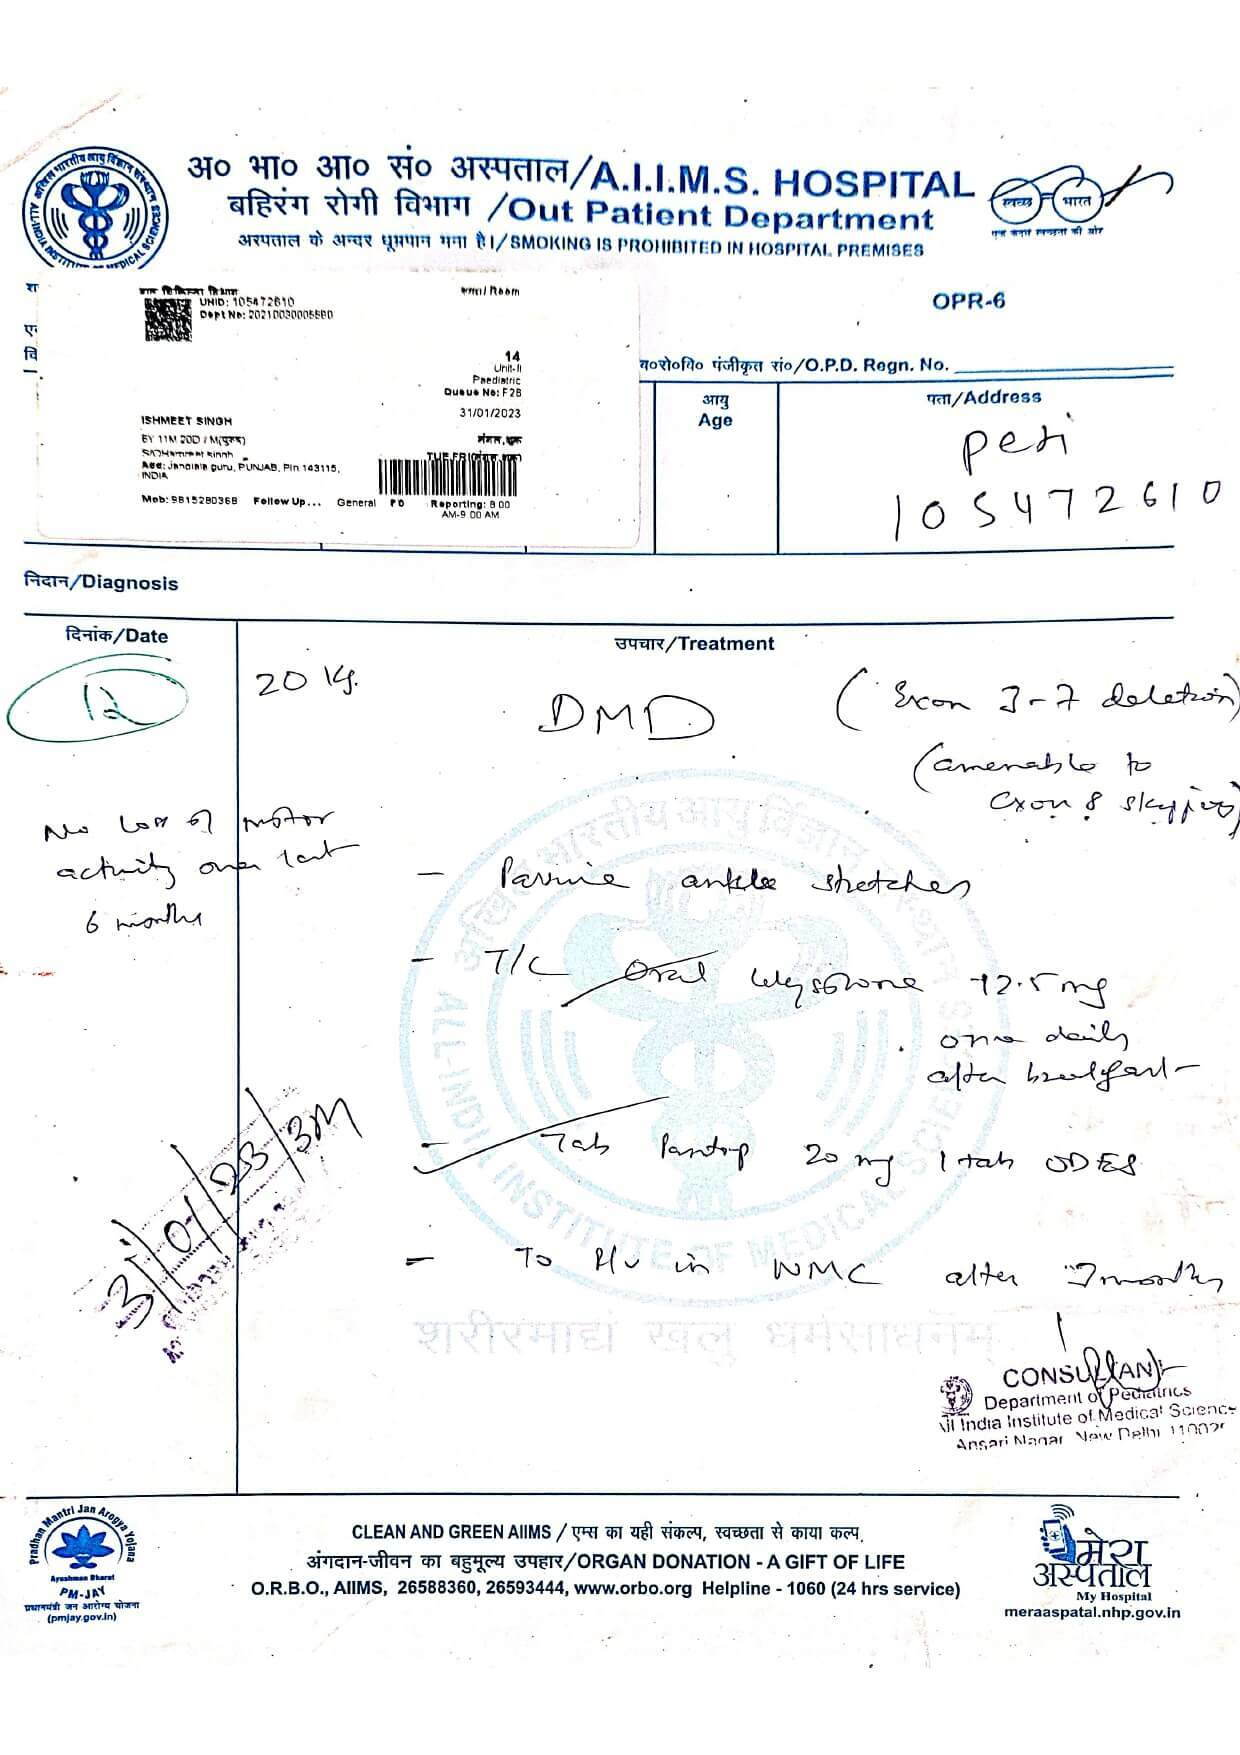 अ० भा० आ० सं० अस्पताल/A.I.I.M.S. HOSPITAL
बहिरंग रोगी विभाग /Out Patient Department
अस्पताल के अन्दर धूम्रपान मना है।/SMOKING IS PROHIBITED IN HOSPITAL PREMISES
स्वच्छ भारत
एक कदम स्वच्छता की ओर
OPR-6
बाल चिकित्सा विभाग
कमरा/Room
UHID: 105472610
Dept No: 20210030005580
14
Unit-II
Paediatric
Queue No: F28
31/01/2023
ISHMEET SINGH
8Y 11M 20D / M(पुरुष)
Add: Jandiala guru, PUNJAB, Pin 143115,
INDIA
मंगल, शुक्र
Mob: 9815280368 Follow Up... General ₹0 Reporting: 8 00
AM-9 00 AM
ब०रो०वि० पंजीकृत सं०/O.P.D. Regn. No.
आयु
Age
पता/Address
105472610
निदान/Diagnosis
दिनांक/Date
उपचार/Treatment
12
20 kg.
DMD
(Exon 3-7 deletion)
(amenable to
exon 8 skipping)
No loss of motor
activity over last
6 months
- Passive ankle stretches
- T/C Oral Wysolone 12.5 mg
once daily
after breakfast
- Tab Pantop 20 mg 1 tab ODES
- To R/v in NMC after 3 months
31/01/23/3M
CONSULTANT
Department of Pediatrics
All India Institute of Medical Sciences
Ansari Nagar, New Delhi 110029
ALL INDIA INSTITUTE OF MEDICAL SCIENCES
शरीरमाद्यं खलु धर्मसाधनम्
Pradhan Mantri Jan Arogya Yojana
Ayushman Bharat
PM-JAY
प्रधानमंत्री जन आरोग्य योजना
(pmjay.gov.in)
CLEAN AND GREEN AIIMS / एम्स का यही संकल्प, स्वच्छता से काया कल्प.
अंगदान-जीवन का बहुमूल्य उपहार/ORGAN DONATION - A GIFT OF LIFE
O.R.B.O., AIIMS, 26588360, 26593444, www.orbo.org Helpline - 1060 (24 hrs service)
मेरा
अस्पताल
My Hospital
meraaspatal.nhp.gov.in